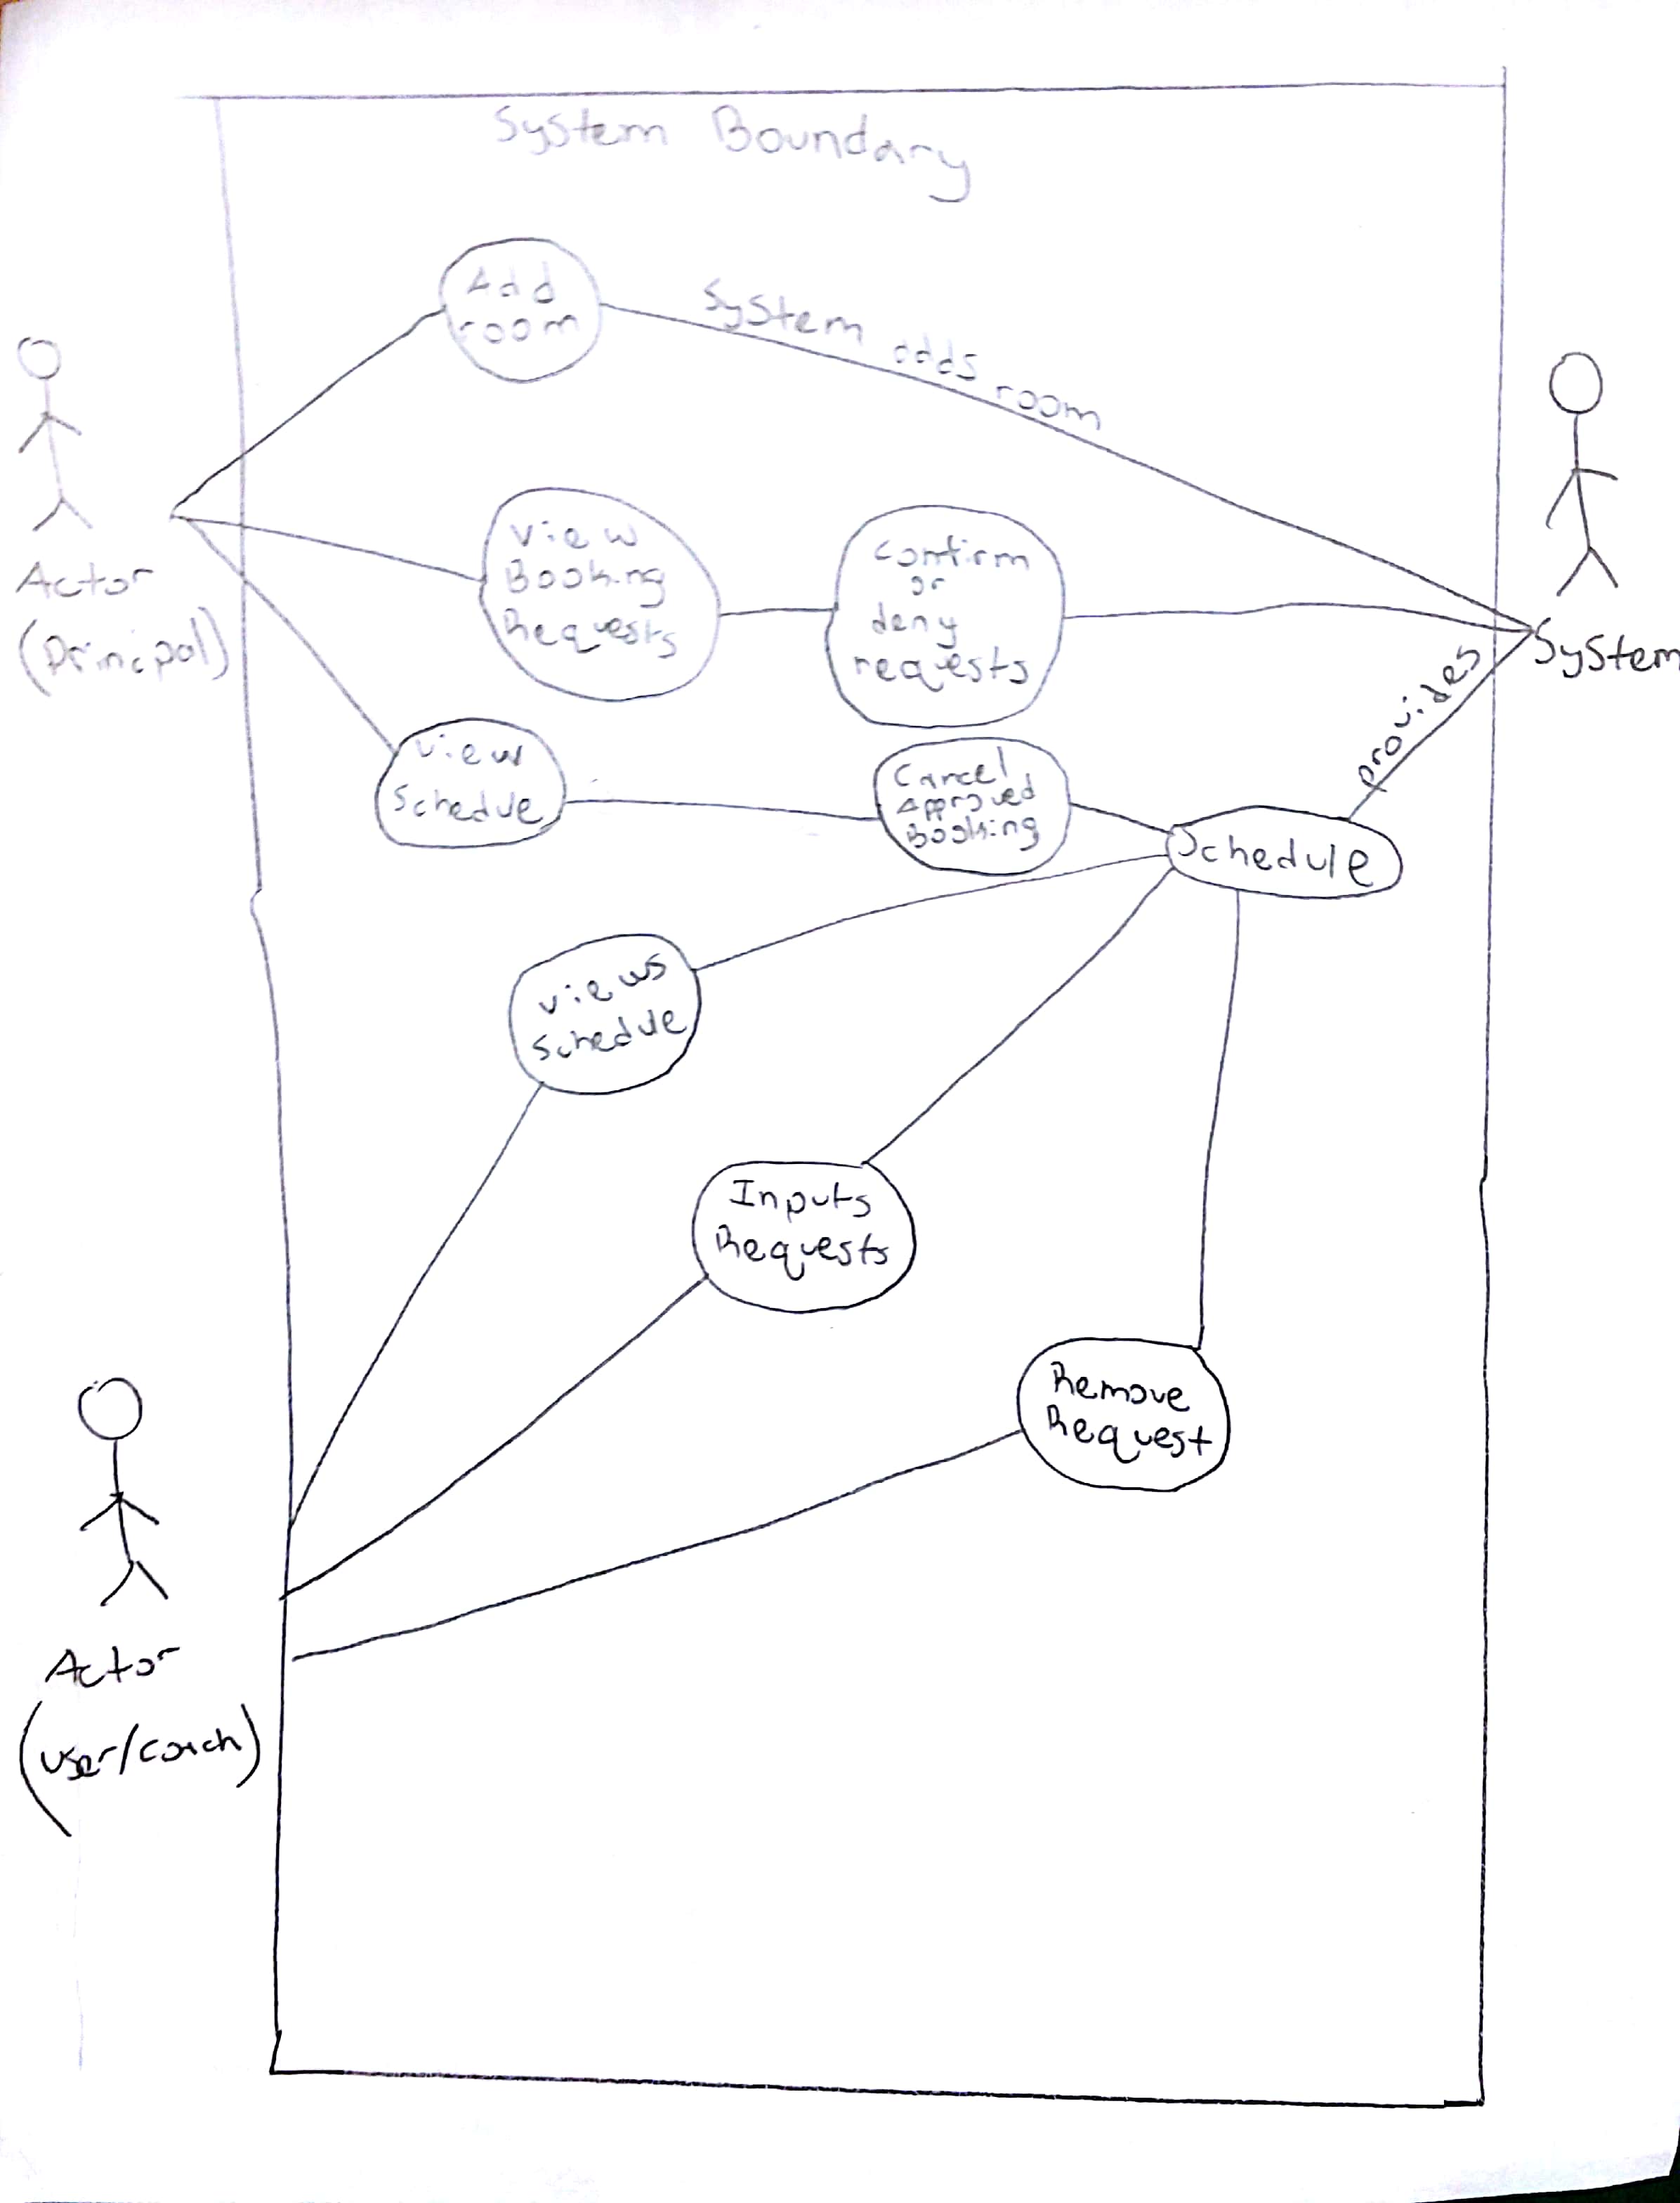 System Boundary
Add
room
System adds room
Actor
(Principal)
View
Booking
Requests
Confirm
or
deny
requests
System
provides
View
Schedule
Cancel
Approved
Booking
Schedule
Views
Schedule
Inputs
Requests
Remove
Request
Actor
(User/Coach)